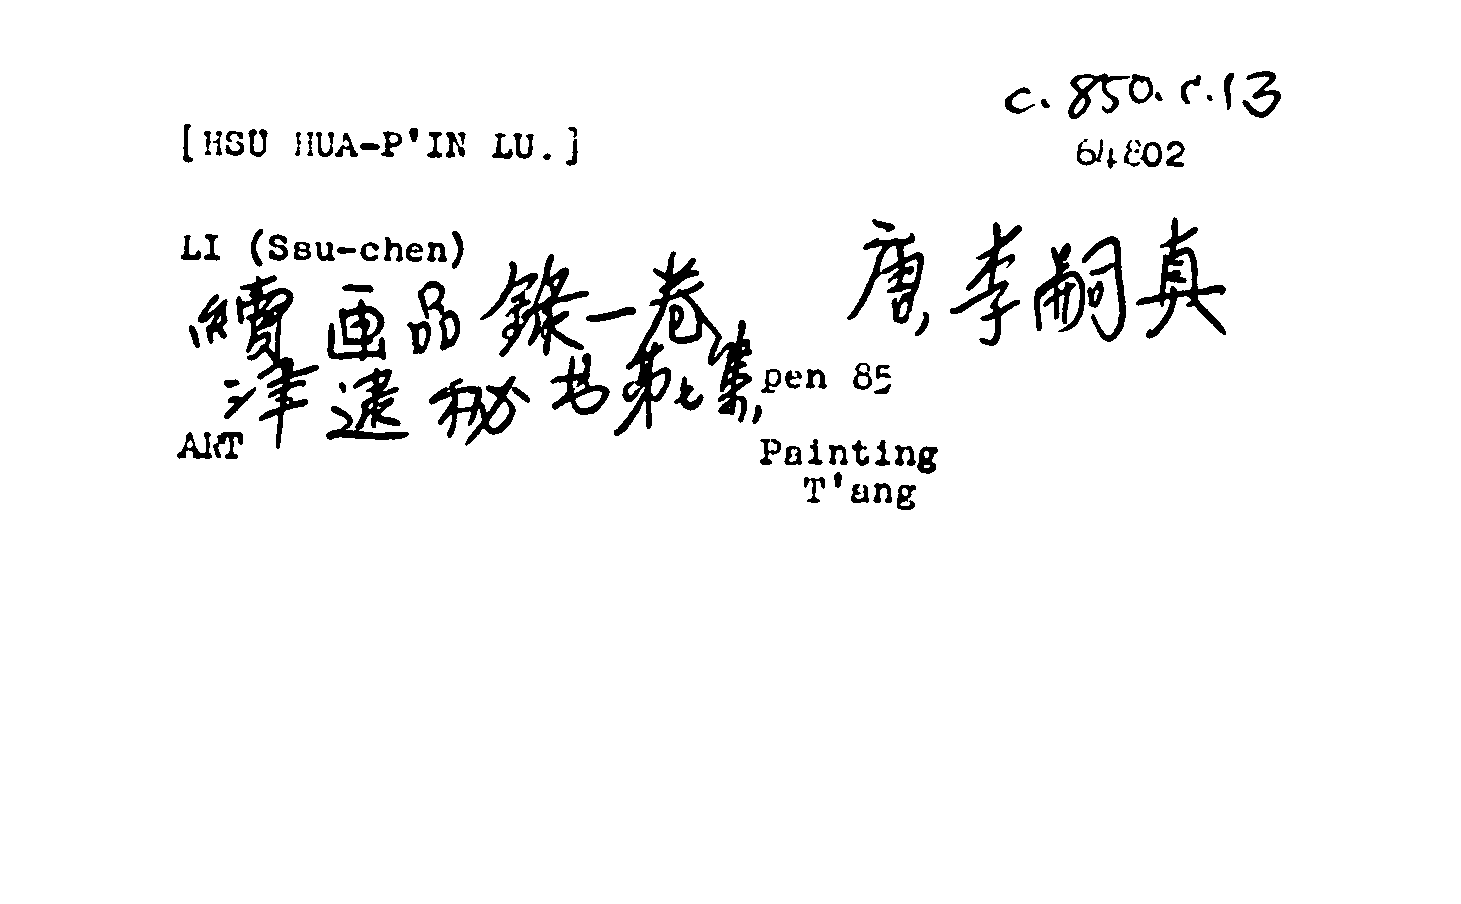 c. 850. c. 13
[HSU HUA-P'IN LU.]
64802
LI (Ssu-chen)
唐, 李嗣真
續画品錄一卷
津逮秘书第七集, pen 85
ART
Painting
T'ang